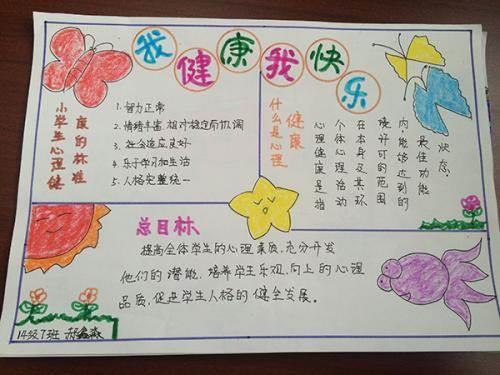 我健康我快乐
小学生心理健
康的标准
1.智力正常
2.情绪丰富.相对稳定后协调
3.社会适应良好
4.乐于学习和生活
5.人格完整统一
什么是心理
健康
心理健康是指
个体心理活动
在本身及其环
境许可的范围
内,能够达到的
最佳功能
状态.
总目标
提高全体学生的心理素质,充分开发
他们的潜能,培养学生乐观.向上的心理
品质,促进学生人格的健全发展。
14级7班